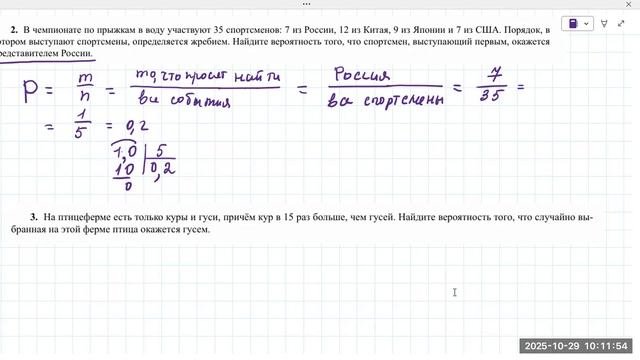 2. В чемпионате по прыжкам в воду участвуют 35 спортсменов: 7 из России, 12 из Китая, 9 из Японии и 7 из США. Порядок, в
котором выступают спортсмены, определяется жребием. Найдите вероятность того, что спортсмен, выступающий первым, окажется
представителем России.
P = m/n = то, что просят найти / все события = Россия / все спортсмены = 7/35 =
= 1/5 = 0,2
1,0 | 5
10 | 0,2
0
3. На птицеферме есть только куры и гуси, причём кур в 15 раз больше, чем гусей. Найдите вероятность того, что случайно вы-
бранная на этой ферме птица окажется гусем.
2025-10-29 10:11:54